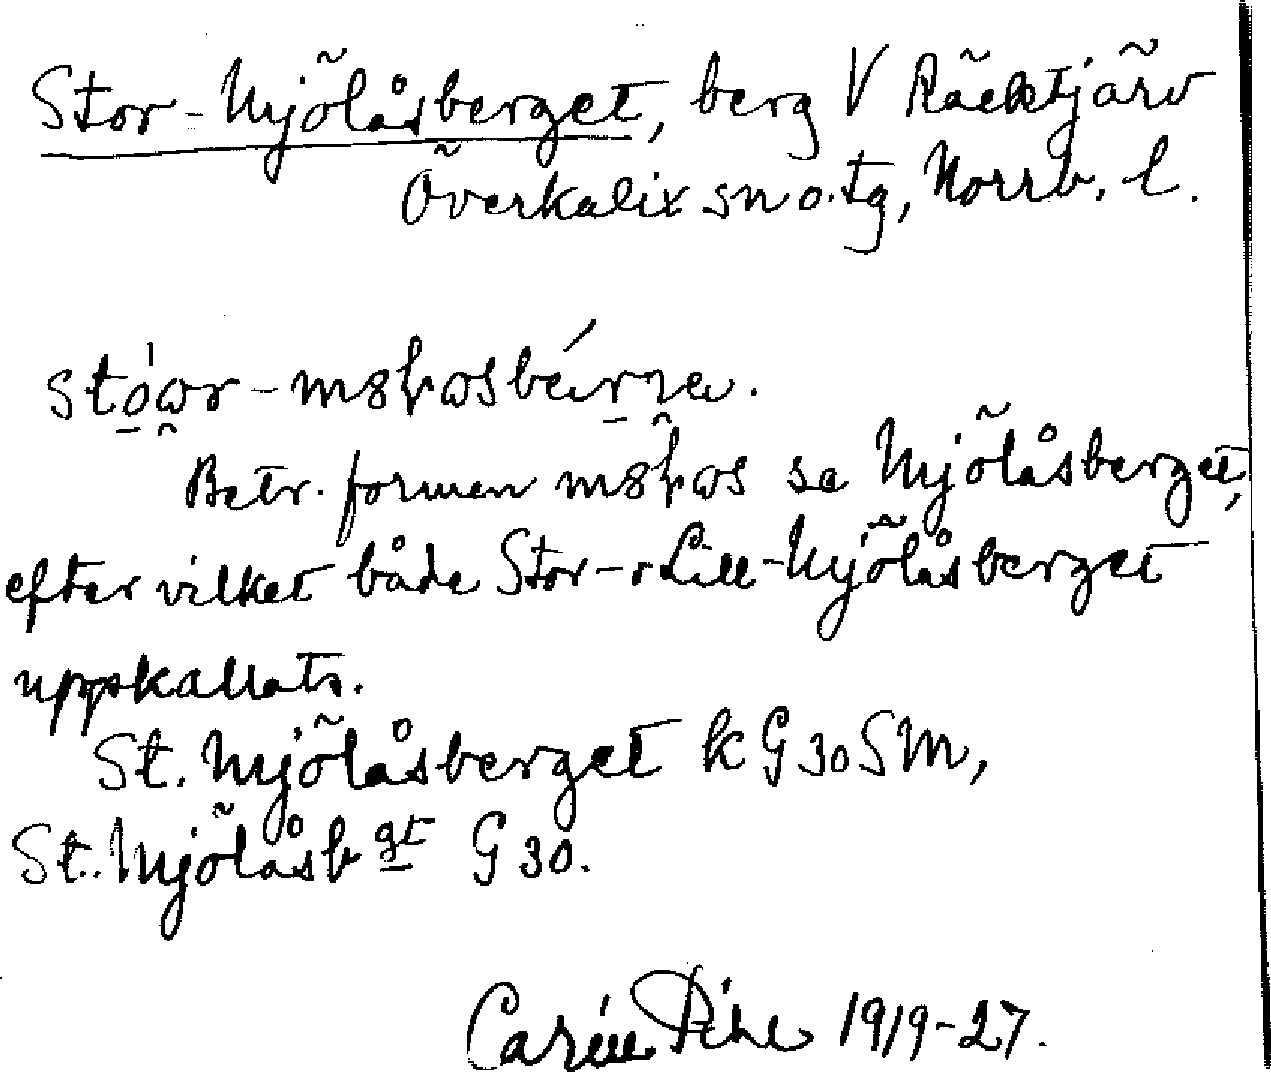 Stor-Mjölåsberget, berg V Räcktjärv
Överkalix sn o. tg, Norrb. l.
Betr. formen se Mjölåsberget,
efter vilket både Stor- o Lill-Mjölåsberget
uppkallats.
St. Mjölåsberget k G 30 SM,
St. Mjölåsb gt G 30.
Carin Pihl 1919-27.